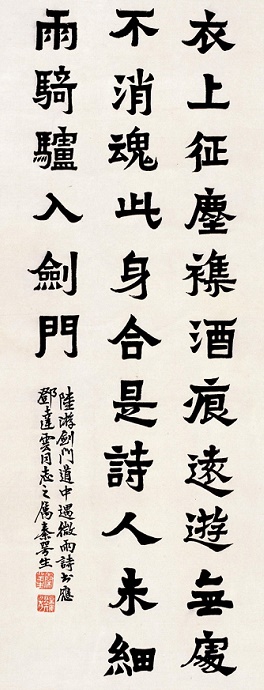 衣上征塵襍酒痕遠遊無處
不消魂此身合是詩人未細
雨騎驢入劍門
陸游劍門道中遇微雨詩書應
鄧達雲同志之屬秦咢生